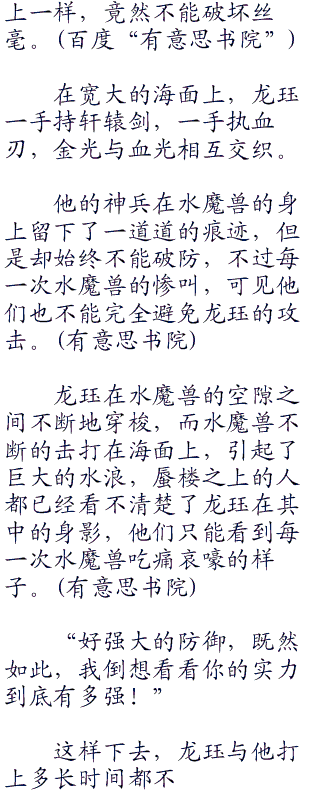 上一样，竟然不能破坏丝
毫。(百度“有意思书院”)
在宽大的海面上，龙珏
一手持轩辕剑，一手执血
刃，金光与血光相互交织。
他的神兵在水魔兽的身
上留下了一道道的痕迹，但
是却始终不能破防，不过每
一次水魔兽的惨叫，可见他
们也不能完全避免龙珏的攻
击。(有意思书院)
龙珏在水魔兽的空隙之
间不断地穿梭，而水魔兽不
断的击打在海面上，引起了
巨大的水浪，蜃楼之上的人
都已经看不清楚了龙珏在其
中的身影，他们只能看到每
一次水魔兽吃痛哀嚎的样
子。(有意思书院)
“好强大的防御，既然
如此，我倒想看看你的实力
到底有多强！”
这样下去，龙珏与他打
上多长时间都不